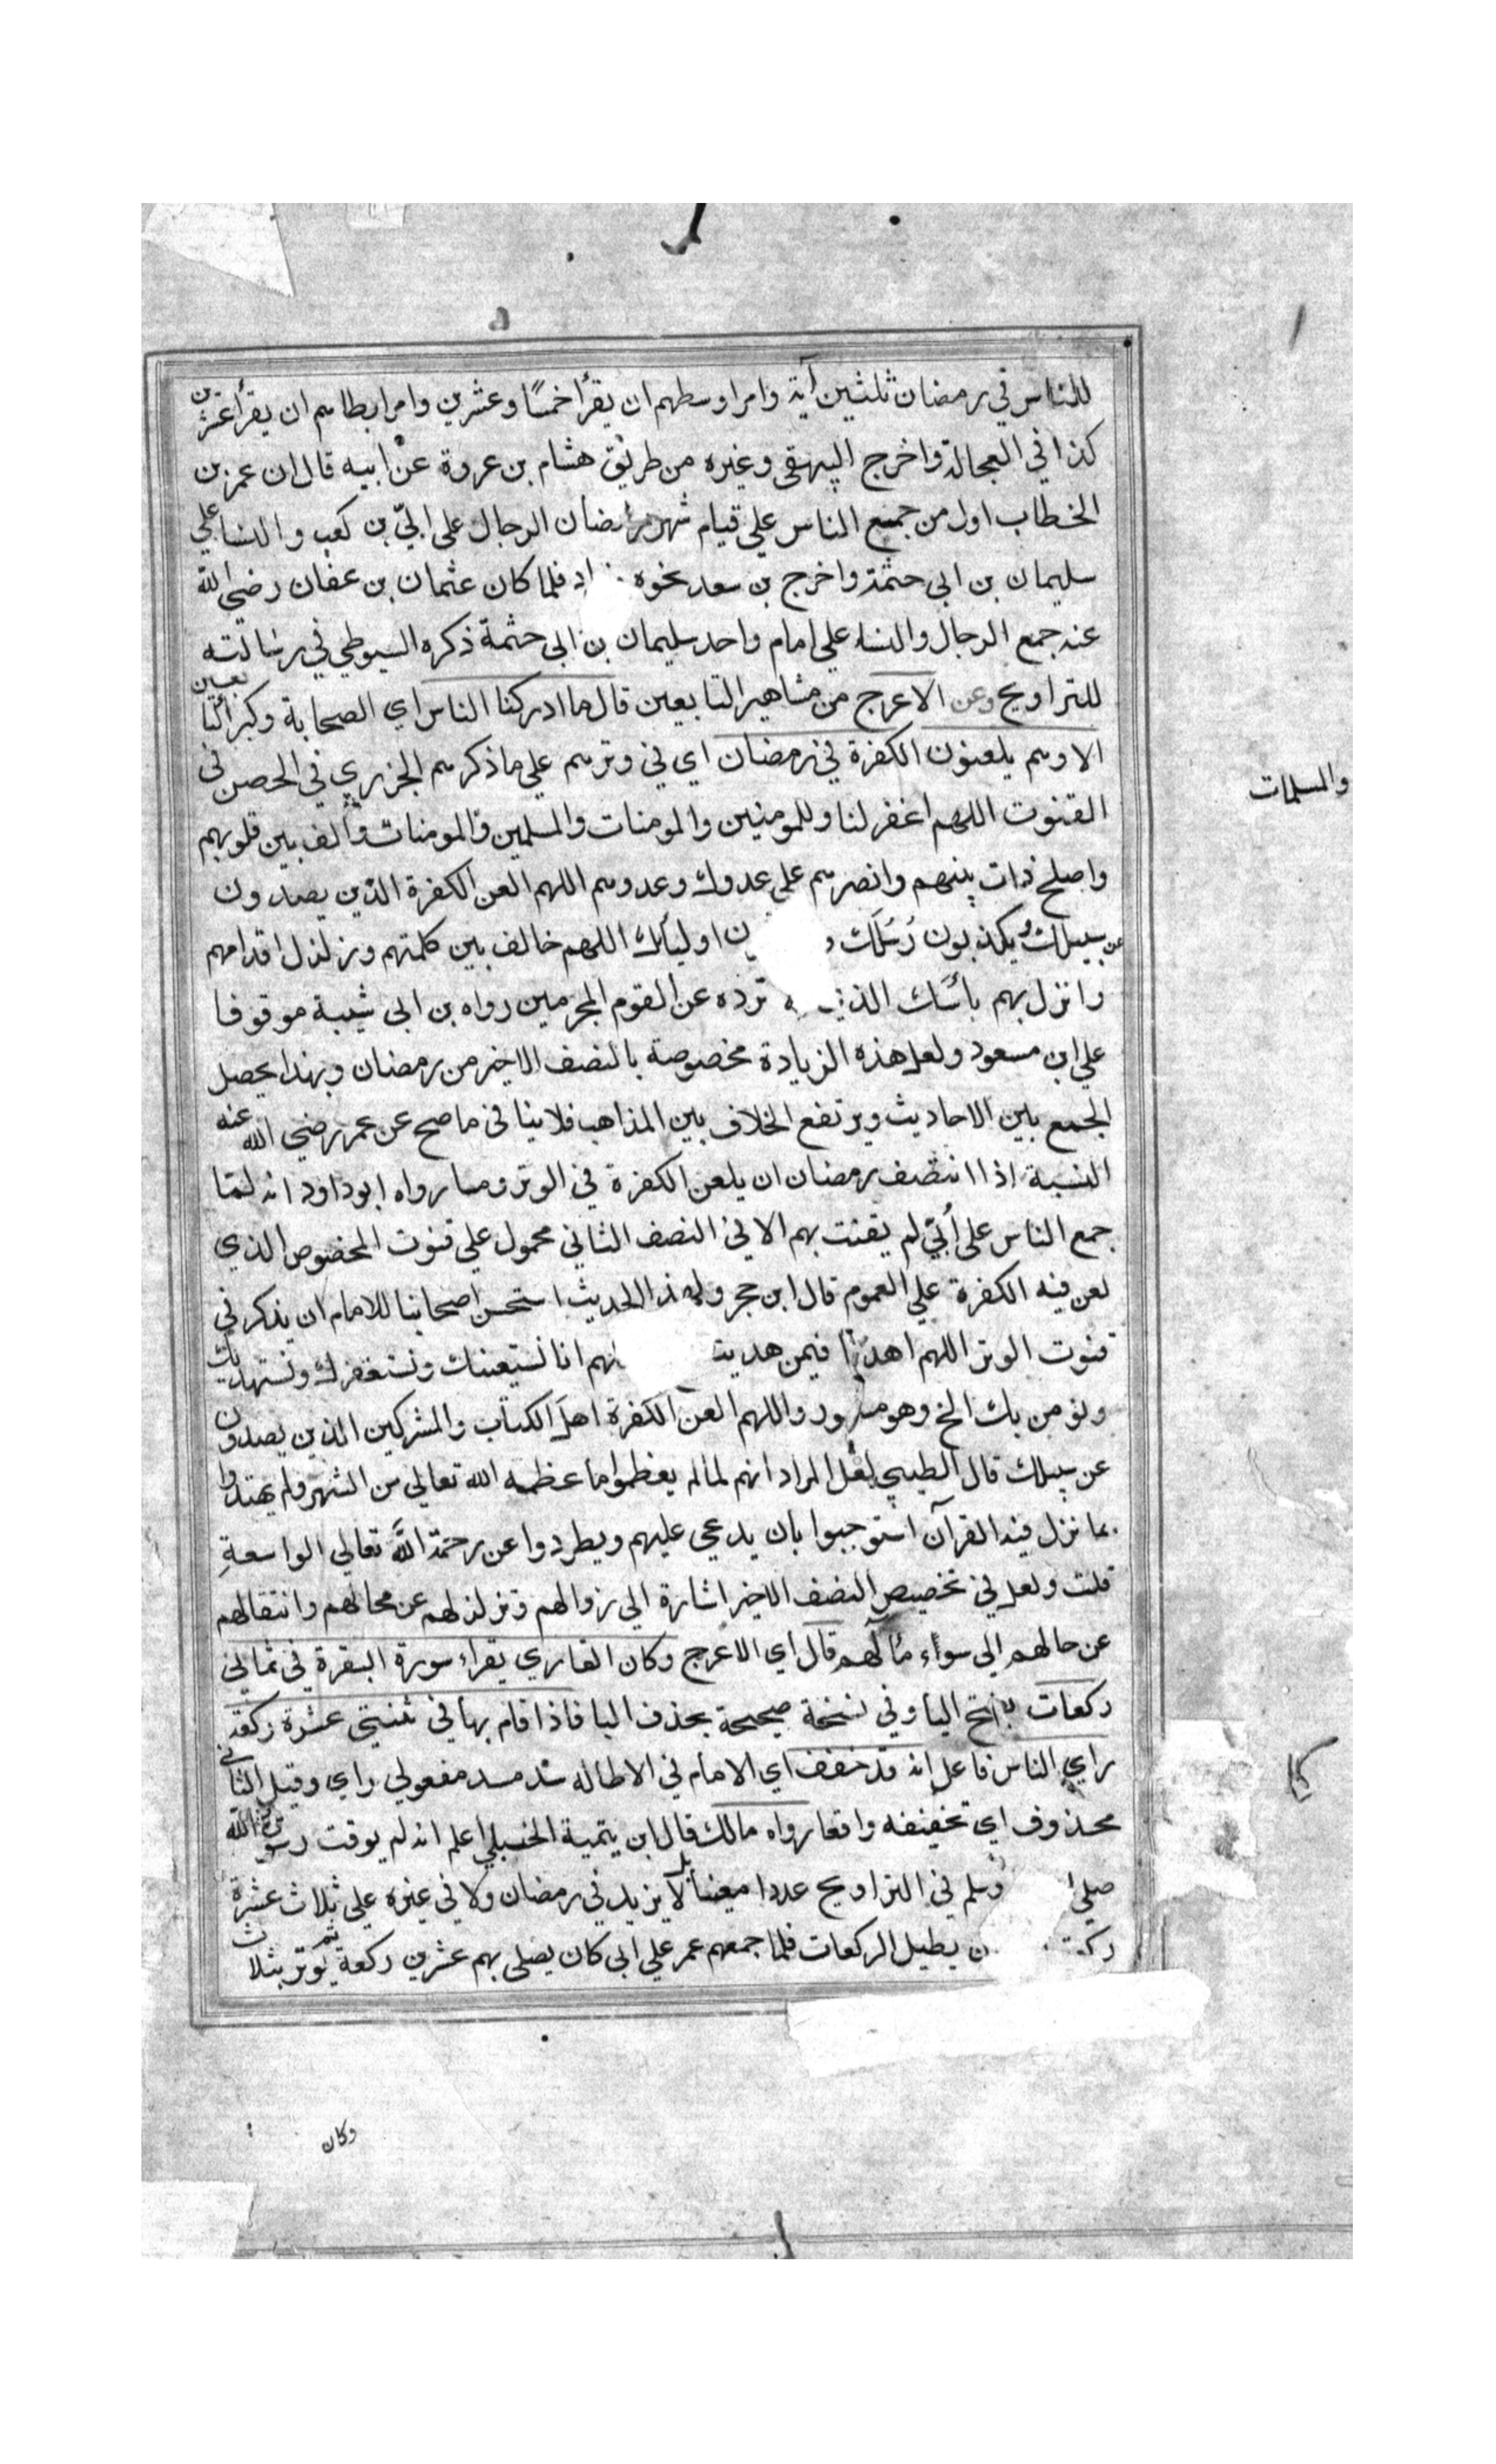 للناس في رمضان ثلثين آية وامر اوسطهم ان يقرأ خمسًا وعشرين وامر ابطاهم ان يقرأ عشرين
كذا في العجالة واخرج البيهقي وغيره من طريق هشام بن عروة عن ابيه قال ان عمر بن
الخطاب اول من جمع الناس علي قيام شهر رمضان الرجال على ابيّ بن كعب والنسا علي
سليمان بن ابي حثمة واخرج بن سعد نحوه اد فلما كان عثمان بن عفان رضي الله
عنه جمع الرجال والنساء علي امام واحد سليمان بن ابي حثمة ذكره السيوطي في رسالته
للتراويح وعن الاعرج من مشاهير التابعين قال ما ادركنا الناس اي الصحابة وكبرا التابعين
الا وهم يلعنون الكفرة في رمضان اي في وترهم علي ما ذكرهم الجزري في الحصن في
القنوت اللهم اغفر لنا وللمومنين والمومنات والمسلمين والمومنات والف بين قلوبهم
والمسلمات
واصلح ذات بينهم وانصرهم على عدوك وعدوهم اللهم العن الكفرة الذين يصدون
عن سبيلك ويكذبون رُسُلَك و ن اوليأك اللهم خالف بين كلمتهم وزلزل اقدامهم
وانزل بهم بأسك الذي ترده عن القوم المجرمين رواه بن ابي شيبة موقوفا
علي ابن مسعود ولعل هذه الزيادة مخصوصة بالنصف الاخير من رمضان وبهذا يحصل
الجمع بين الاحاديث ويرتفع الخلاف بين المذاهب فلا ينافي ما صح عن عمر رضي الله عنه
السنة اذا انتصف رمضان ان يلعن الكفرة في الوتر وما رواه ابو داود انه لما
جمع الناس على أُبيّ لم يقنت بهم الا في النصف الثاني محمول علي قنوت المخصوص الذي
لعن فيه الكفرة علي العموم قال ابن حجر ولهذا الحديث استحسن اصحابنا للامام ان يذكر في
قنوت الوتر اللهم اهدنا فيمن هديت هم انا نستعينك ونستغفرك ونستهديك
ونومن بك الخ وهو مشهور واللهم العن الكفرة اهل الكتاب والمشركين الذين يصدون
عن سبيلك قال الطيبي لعل المراد انهم لما لم يعظموا ما عظمه الله تعالي من الشهر ولم يهتدوا
بما نزل فيه القرآن استوجبوا بان يدعي عليهم ويطردوا عن رحمة الله تعالي الواسعةِ
قلت ولعل في تخصيص النصف الاخير اشارة الي زوالهم وتزلزلهم عن محالهم وانتقالهم
عن حالهم الي سواء مآلهم قال اي الاعرج وكان القاري يقراء سورة البقرة في ثماني
ركعات بفتح اليا وفي نسخة صحيحة بحذف اليا فاذا قام بها في ثنتي عشرة ركعة
راي الناس فاعل انه قد خفف اي الامام في الاطاله سد مسد مفعولي راي وقيل الثاني
محذوف اي تخفيفه واقعا رواه مالك قال ابن تيمية الحنبلي اعلم انه لم يوقت رسول الله
صلي وسلم في التراويح عددا معينا بل لا يزيد في رمضان ولا في غيره علي ثلاث عشرة
ركعة ن يطيل الركعات فلما جمعهم عمر علي ابي كان يصلي بهم عشرين ركعة ثم يوتر بثلاث
وكان